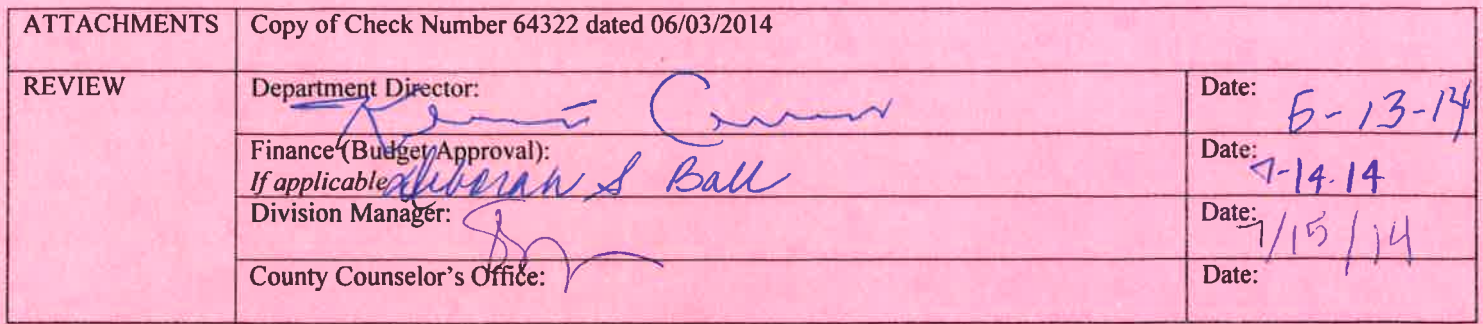 ATTACHMENTS Copy of Check Number 64322 dated 06/03/2014
REVIEW Department Director: Date: 6-13-14
Finance (Budget Approval): Date: 7-14.14
If applicable Deborah S Ball
Division Manager: Date: 7/15/14
County Counselor's Office: Date: